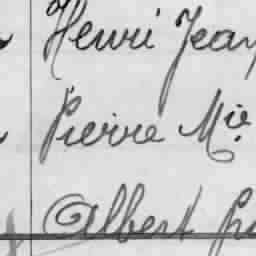 Henri Jean
Pierre Mie
Albert